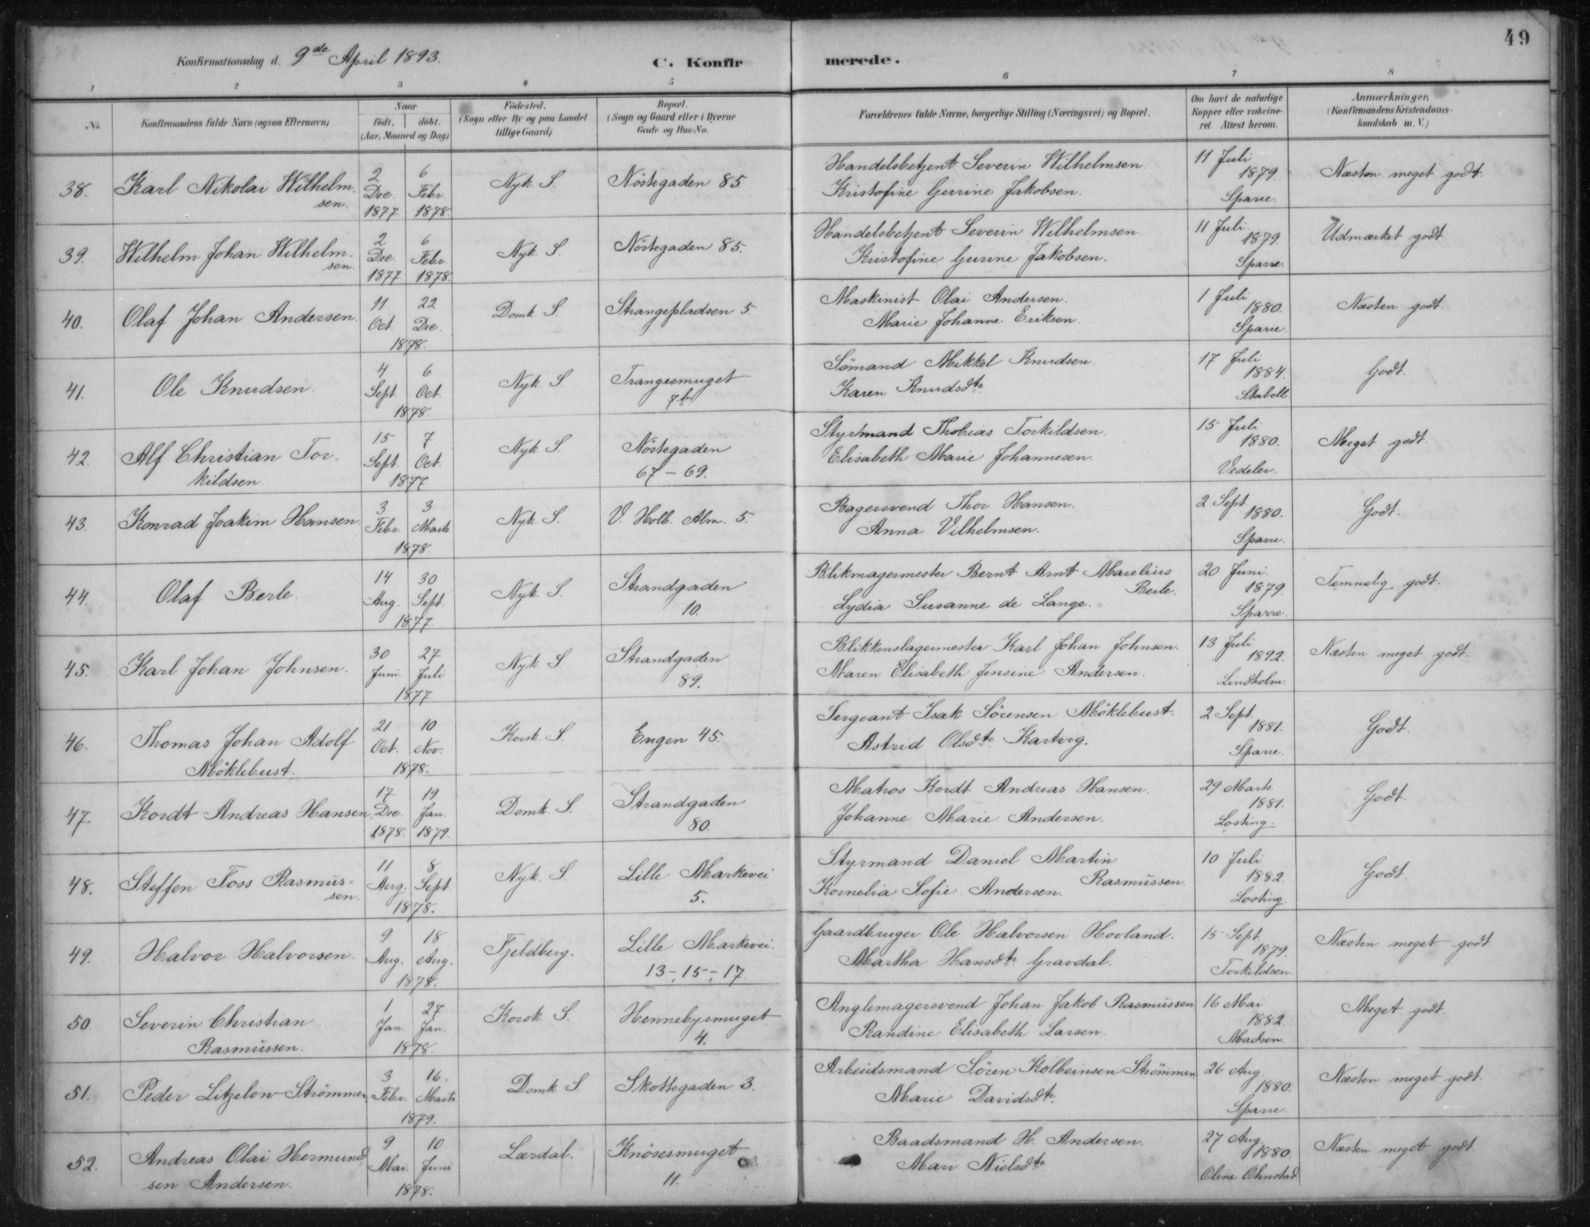 49
Konfirmationsdag d. 9de April 1893.
C. Konfirmerede.
1 2 3 4 5 6 7 8
No. Konfirmandens fulde Navn (ogsaa Efternavn) Naar født. døbt. (Aar, Maaned og Dag) Fødested. (Sogn eller By og paa Landet tillige Gaard) Bopæl. (Sogn og Gaard eller i Byerne Gade og Hus-No. Forældrenes fulde Navne, borgerlige Stilling (Næringsvei) og Bopæl. Om havt de naturlige Kopper eller vaksineret. Attest herom. Anmærkninger, (Konfirmandens Kristendomskundskab m. V.)
38. Karl Nikolai Wilhelmsen. 2 Dec. 1877 6 Febr. 1878 Nyk. S. Nöstegaden 85. Handelsbetjent Severin Wilhelmsen. Kristofine Gurine Jakobsen. 11 Juli 1879. Sparre. Næsten meget godt.
39. Wilhelm Johan Wilhelmsen. 2 Dec. 1877 6 Febr. 1878. Nyk. S. Nöstegaden 85. Handelsbetjent Severin Wilhelmsen. Kristofine Gurine Jakobsen. 11 Juli 1879. Sparre. Udmærket godt.
40. Olaf Johan Andersen. 11 Oct. 22 Dec. 1878. Domk. S. Strangepladsen 5. Maskinist Olai Andersen. Marie Johanne Eriksen. 1 Juli 1880. Sparre. Næsten godt.
41. Ole Knudsen. 4 Sept. 6 Oct. 1878. Nyk. S. Trangesmuget 7b. Sömand Mikkel Knudsen. Karen Knudsdtr. 17 Juli 1884. Stabell Godt.
42. Alf Christian Torkildsen. 15 Sept. 7 Oct. 1877 Nyk. S. Nöstegaden 67-69. Styrmand Thobias Torkildsen. Elisabeth Marie Johannesen. 15 Juli 1880. Vedeler. Meget godt.
43. Konrad Joakim Hansen 3 Febr. 3 Marts 1878. Nyk. S. V. Holb. Alm. 5. Bagersvend Thor Hansen. Anna Vilhelmsen. 2 Sept 1880. Sparre. Godt.
44. Olaf Berle. 14 Aug. 30 Sept. 1877 Nyk. S. Strandgaden 10. Blikmagermester Bernt Arnt Marelius Berle. Lydia Susanne de Lange. 20 Juni 1879. Sparre. Temmelig godt.
45. Karl Johan Johnsen. 30 Juni 27 Juli 1877 Nyk. S Strandgaden 89. Blikkenslagermester Karl Johan Johnsen. Maren Elisabeth Jensine Andersen. 13 Juli 1892. Lindholm. Næsten meget godt.
46. Thomas Johan Adolf Möklebust. 21 Oct. 10 Nov. 1878. Korsk. S. Engen 45. Sergeant Isak Sörensen Möklebust. Astrid Olsdtr. 2 Sept 1881. Sparre. Godt.
47. Kordt Andreas Hansen 17 Dec. 1878. 19 Jan. 1879. Domk. S. Strandgaden 80. Matros Kordt Andreas Hansen. Johanne Marie Andersen. 29 Marts 1881. Losting. Godt.
48. Steffen Foss Rasmussen. 11 Aug. 8 Sept. 1878. Nyk. S. Lille Markevei 5. Styrmand Daniel Martin Rasmussen. Kornelia Sofie Andersen. 10 Juli 1882. Losting. Godt.
49. Halvor Halvorsen. 9 Aug. 18 Aug. 1878. Fjeldberg. Lille Markevei. 13-15-17. Gaardbruger Ole Halvorsen Hovland. Martha Hansdtr. Gravdal. 15 Sept. 1879. Torkildsen Næsten meget godt.
50 Severin Christian Rasmussen. 1 Jan. 27 Jan. 1878 Korsk. S. Hennebysmuget 4. Anglemagersvend Johan Jakob Rasmussen Randine Elisabeth Larsen. 16 Mai 1882. Madsen. Meget godt.
51. Peder Litzelow Strömmen. 3 Febr. 16. Marts 1879. Domk S Skottegaden 3. Arbeidsmand Sören Kolbeinsen Strömmen Marie Davidsdtr. 26 Aug. 1880. Sparre. Næsten meget godt.
52. Andreas Olai Hermundsen Andersen. 9 Mai. 10 Juni 1878. Lærdal. Knösesmuget 11. Baadsmand H. Andersen. Mari Nielsdtr 27 Aug. 1880. Oline Næsten meget godt.